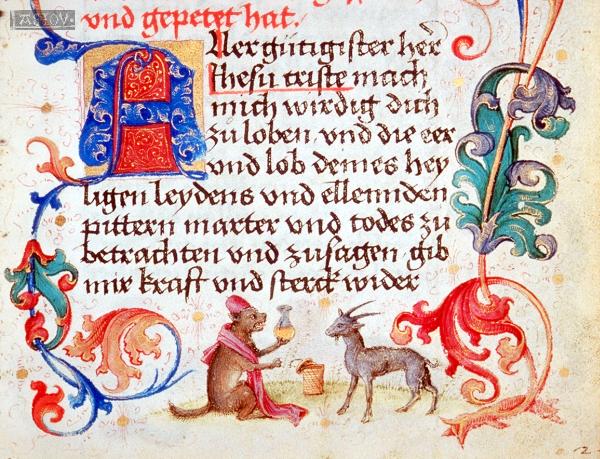 und gepetet hat.
Aller gütigister herr
Jhesu criste mach
mich wirdig dich
zu loben. und die eer
und lob deines hey
ligen leydens und ellenniden
pittern marter und todes zu
betrachten und zusagen. gib
mir kraft und sterck wider
2